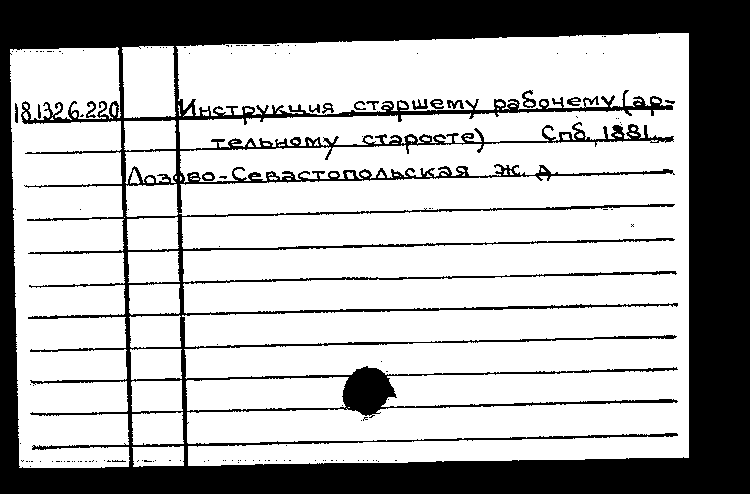 18.132.6.220 Инструкция старшему рабочему (ар-
тельному старосте) Спб. 1881.
Лозово-Севастопольская ж. д.